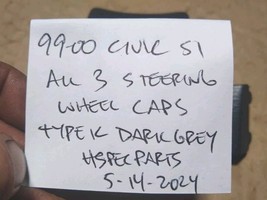 99-00 CIVIC SI
ALL 3 STEERING
WHEEL CAPS
TYPE K DARK GREY
HSPEC PARTS
5-14-2024